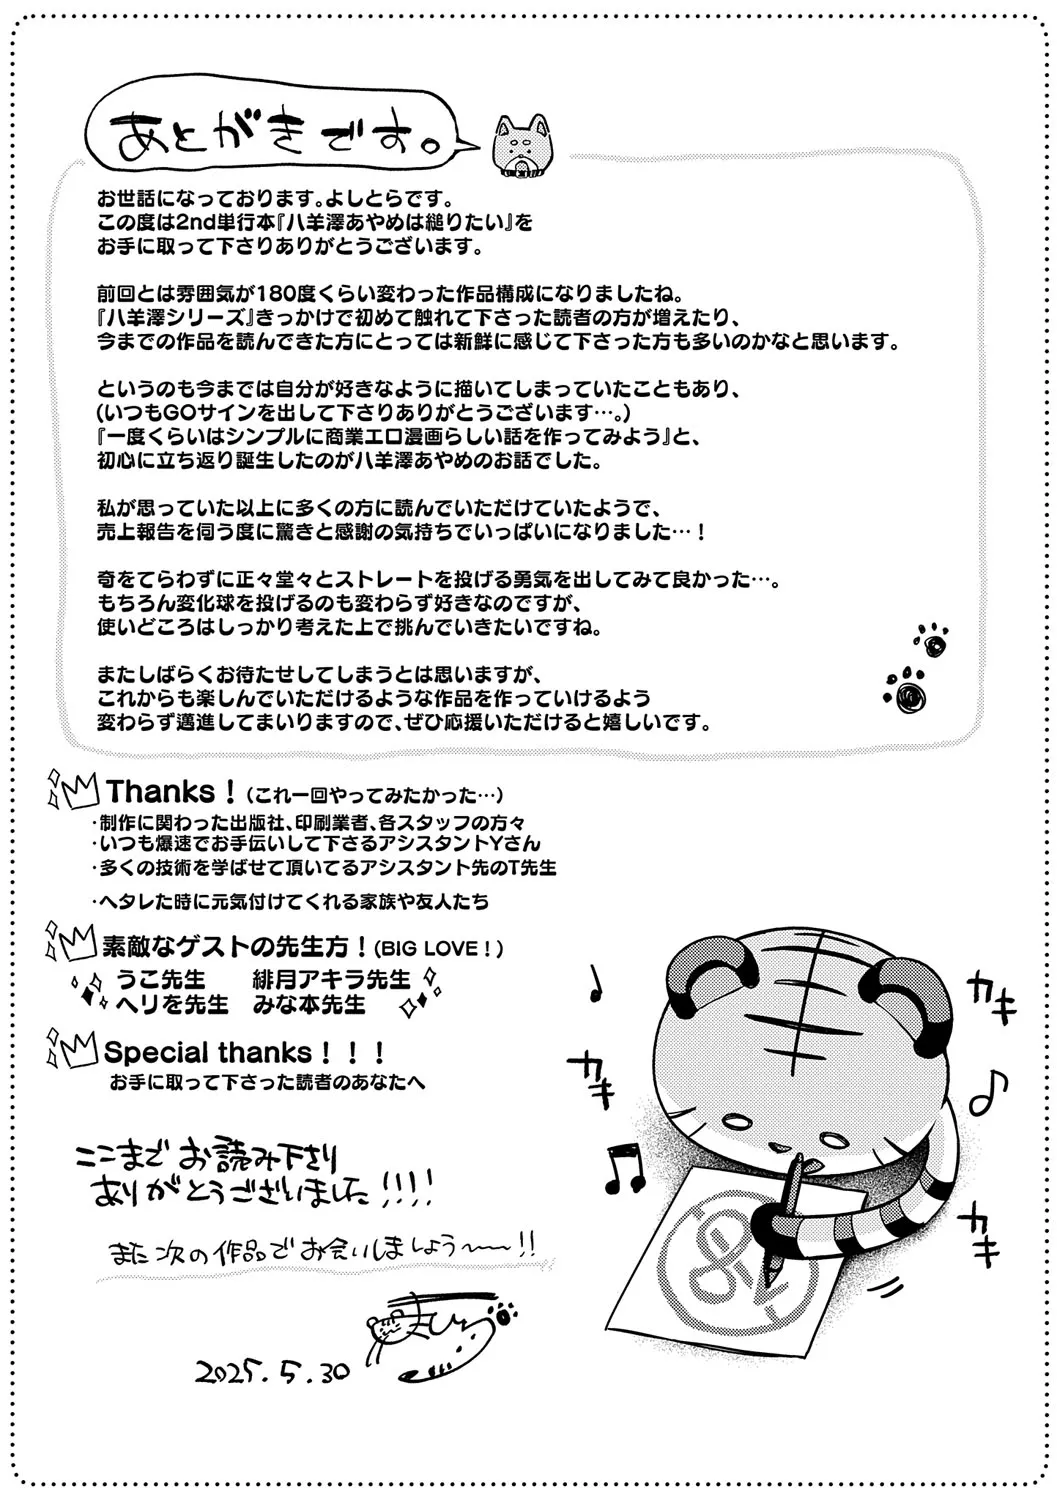 あとがきです。
お世話になっております。よしとらです。
この度は2nd単行本『八羊澤あやめは縋りたい』を
お手に取って下さりありがとうございます。
前回とは雰囲気が180度くらい変わった作品構成になりましたね。
『八羊澤シリーズ』きっかけで初めて触れて下さった読者の方が増えたり、
今までの作品を読んできた方にとっては新鮮に感じて下さった方も多いのかなと思います。
というのも今までは自分が好きなように描いてしまっていたこともあり、
(いつもGOサインを出して下さりありがとうございます…。)
『一度くらいはシンプルに商業エロ漫画らしい話を作ってみよう』と、
初心に立ち返り誕生したのが八羊澤あやめのお話でした。
私が思っていた以上に多くの方に読んでいただけていたようで、
売上報告を伺う度に驚きと感謝の気持ちでいっぱいになりました…!
奇をてらわずに正々堂々とストレートを投げる勇気を出してみて良かった…。
もちろん変化球を投げるのも変わらず好きなのですが、
使いどころはしっかり考えた上で挑んでいきたいですね。
またしばらくお待たせしてしまうとは思いますが、
これからも楽しんでいただけるような作品を作っていけるよう
変わらず邁進してまいりますので、ぜひ応援いただけると嬉しいです。
Thanks!(これ一回やってみたかった…)
・制作に関わった出版社、印刷業者、各スタッフの方々
・いつも爆速でお手伝いして下さるアシスタントYさん
・多くの技術を学ばせて頂いてるアシスタント先のT先生
・ヘタレた時に元気付けてくれる家族や友人たち
素敵なゲストの先生方!(BIG LOVE!)
うこ先生 緋月アキラ先生
ヘリを先生 みな本先生
Special thanks!!!
お手に取って下さった読者のあなたへ
ここまでお読み下さり
ありがとうございました!!!!
また次の作品でお会いしましょう〜〜!!
2025.5.30
カキ
カキ
カキ